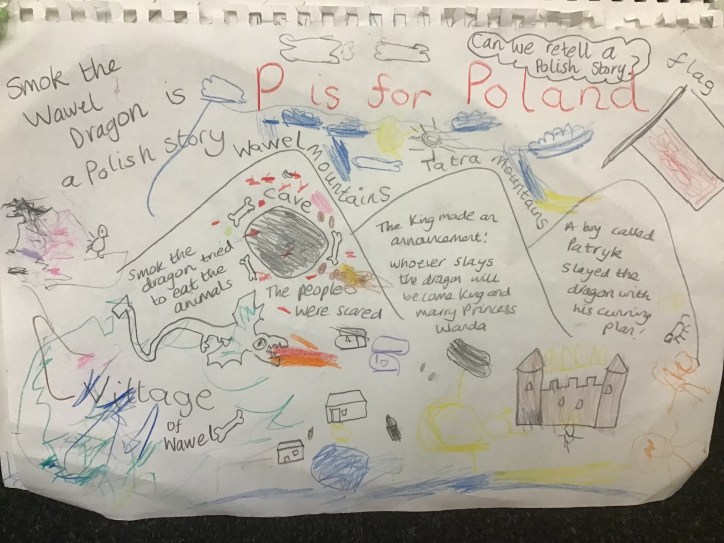 Can we retell a
Polish Story?
flag
P is for Poland
Smok the
Wawel
Dragon is
a Polish story
Wawel Mountains
Tatra Mountains
Cave
Smok the
dragon tried
to eat the
animals
The people
were scared
The King made an
announcement!
whoever slays
the dragon will
become King and
marry Princess
Wanda
A boy called
Patryk
slayed the
dragon with
his cunning
plan!
Village
of
Wawel